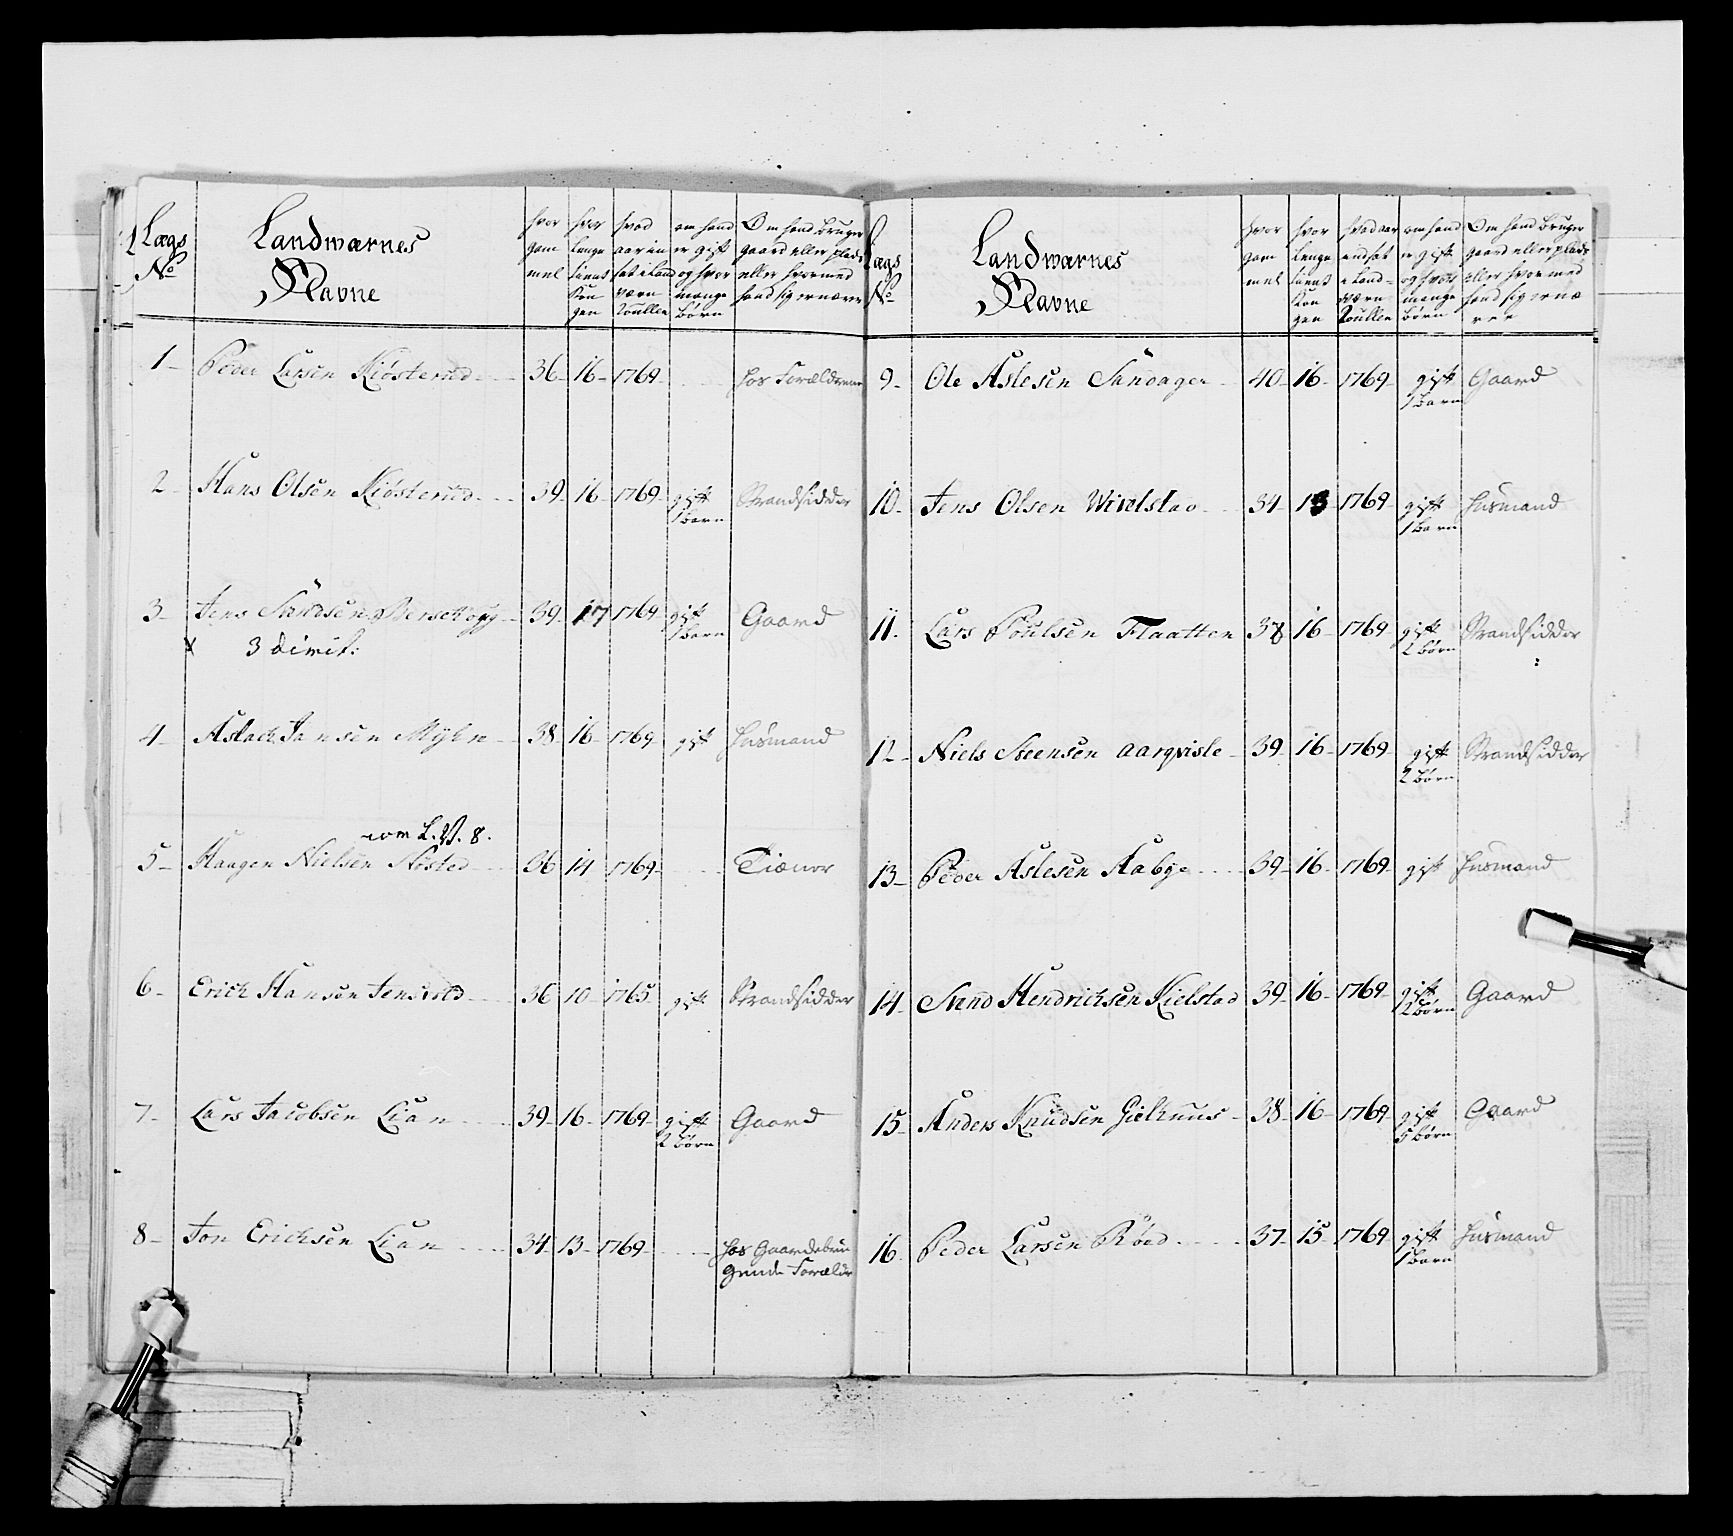 Lægs No
Landwærnes Navne
hvor gam mel
hvor længe tient Kon gen
hvad aar ind sat i Land værn Roullen
om hand er gift og hvor mange børn
Om hand bruger gaard eller plads eller hvormed hand sig ernærer
1 Peder Larsen Kiøsterud 36 16 1769 hos Forældrene
2 Hans Olsen Kiøsterud 39 16 1769 gift 1 barn Strandsidder
3 Jens 39 17 1769 gift 1 barn Gaard
x 3 divis:
4 Aslack Jansen Myhre 38 16 1769 gift Huusmand
L.V. 8.
5 Haagen Nielsen 36 14 1769 Tiænor
6 Erich Hansen 36 10 1765 gift Strandsidder
7 Lars Jacobsen Lian 39 16 1769 gift 2 børn Gaard
8 Jon Erichsen Lian 34 13 1769 hos Gaardebru
gende Forældr
Lægs No
Landwærnes Navne
hvor gam mel
hvor længe tient Kon gen
hvad aar indsat i Land- værn Roullen
om hand er gift og hvor mange børn
Om hand bruger gaard eller plads eller hvormed hand sig ernæ rer
9 Ole Aslesen Sandager 40 16 1769 gift 1 barn Gaard
10 Jens Olsen 34 13 1769 gift 1 barn Huusmand
11 Lars Poulsen Flaatten 38 16 1769 gift 2 børn Strandsidder
12 Niels Steensen Aarqvisle 39 16 1769 gift 2 børn Strandsidder
13 Peder Aslesen Aabye 39 16 1769 gift Huusmand
14 Hendrichsen Kielstad 39 16 1769 gift 2 børn Gaard
15 Anders Knudsen 38 16 1769 gift 5 børn Gaard
16 Peder Larsen Røed 37 15 1769 gift 1 barn Huusmand